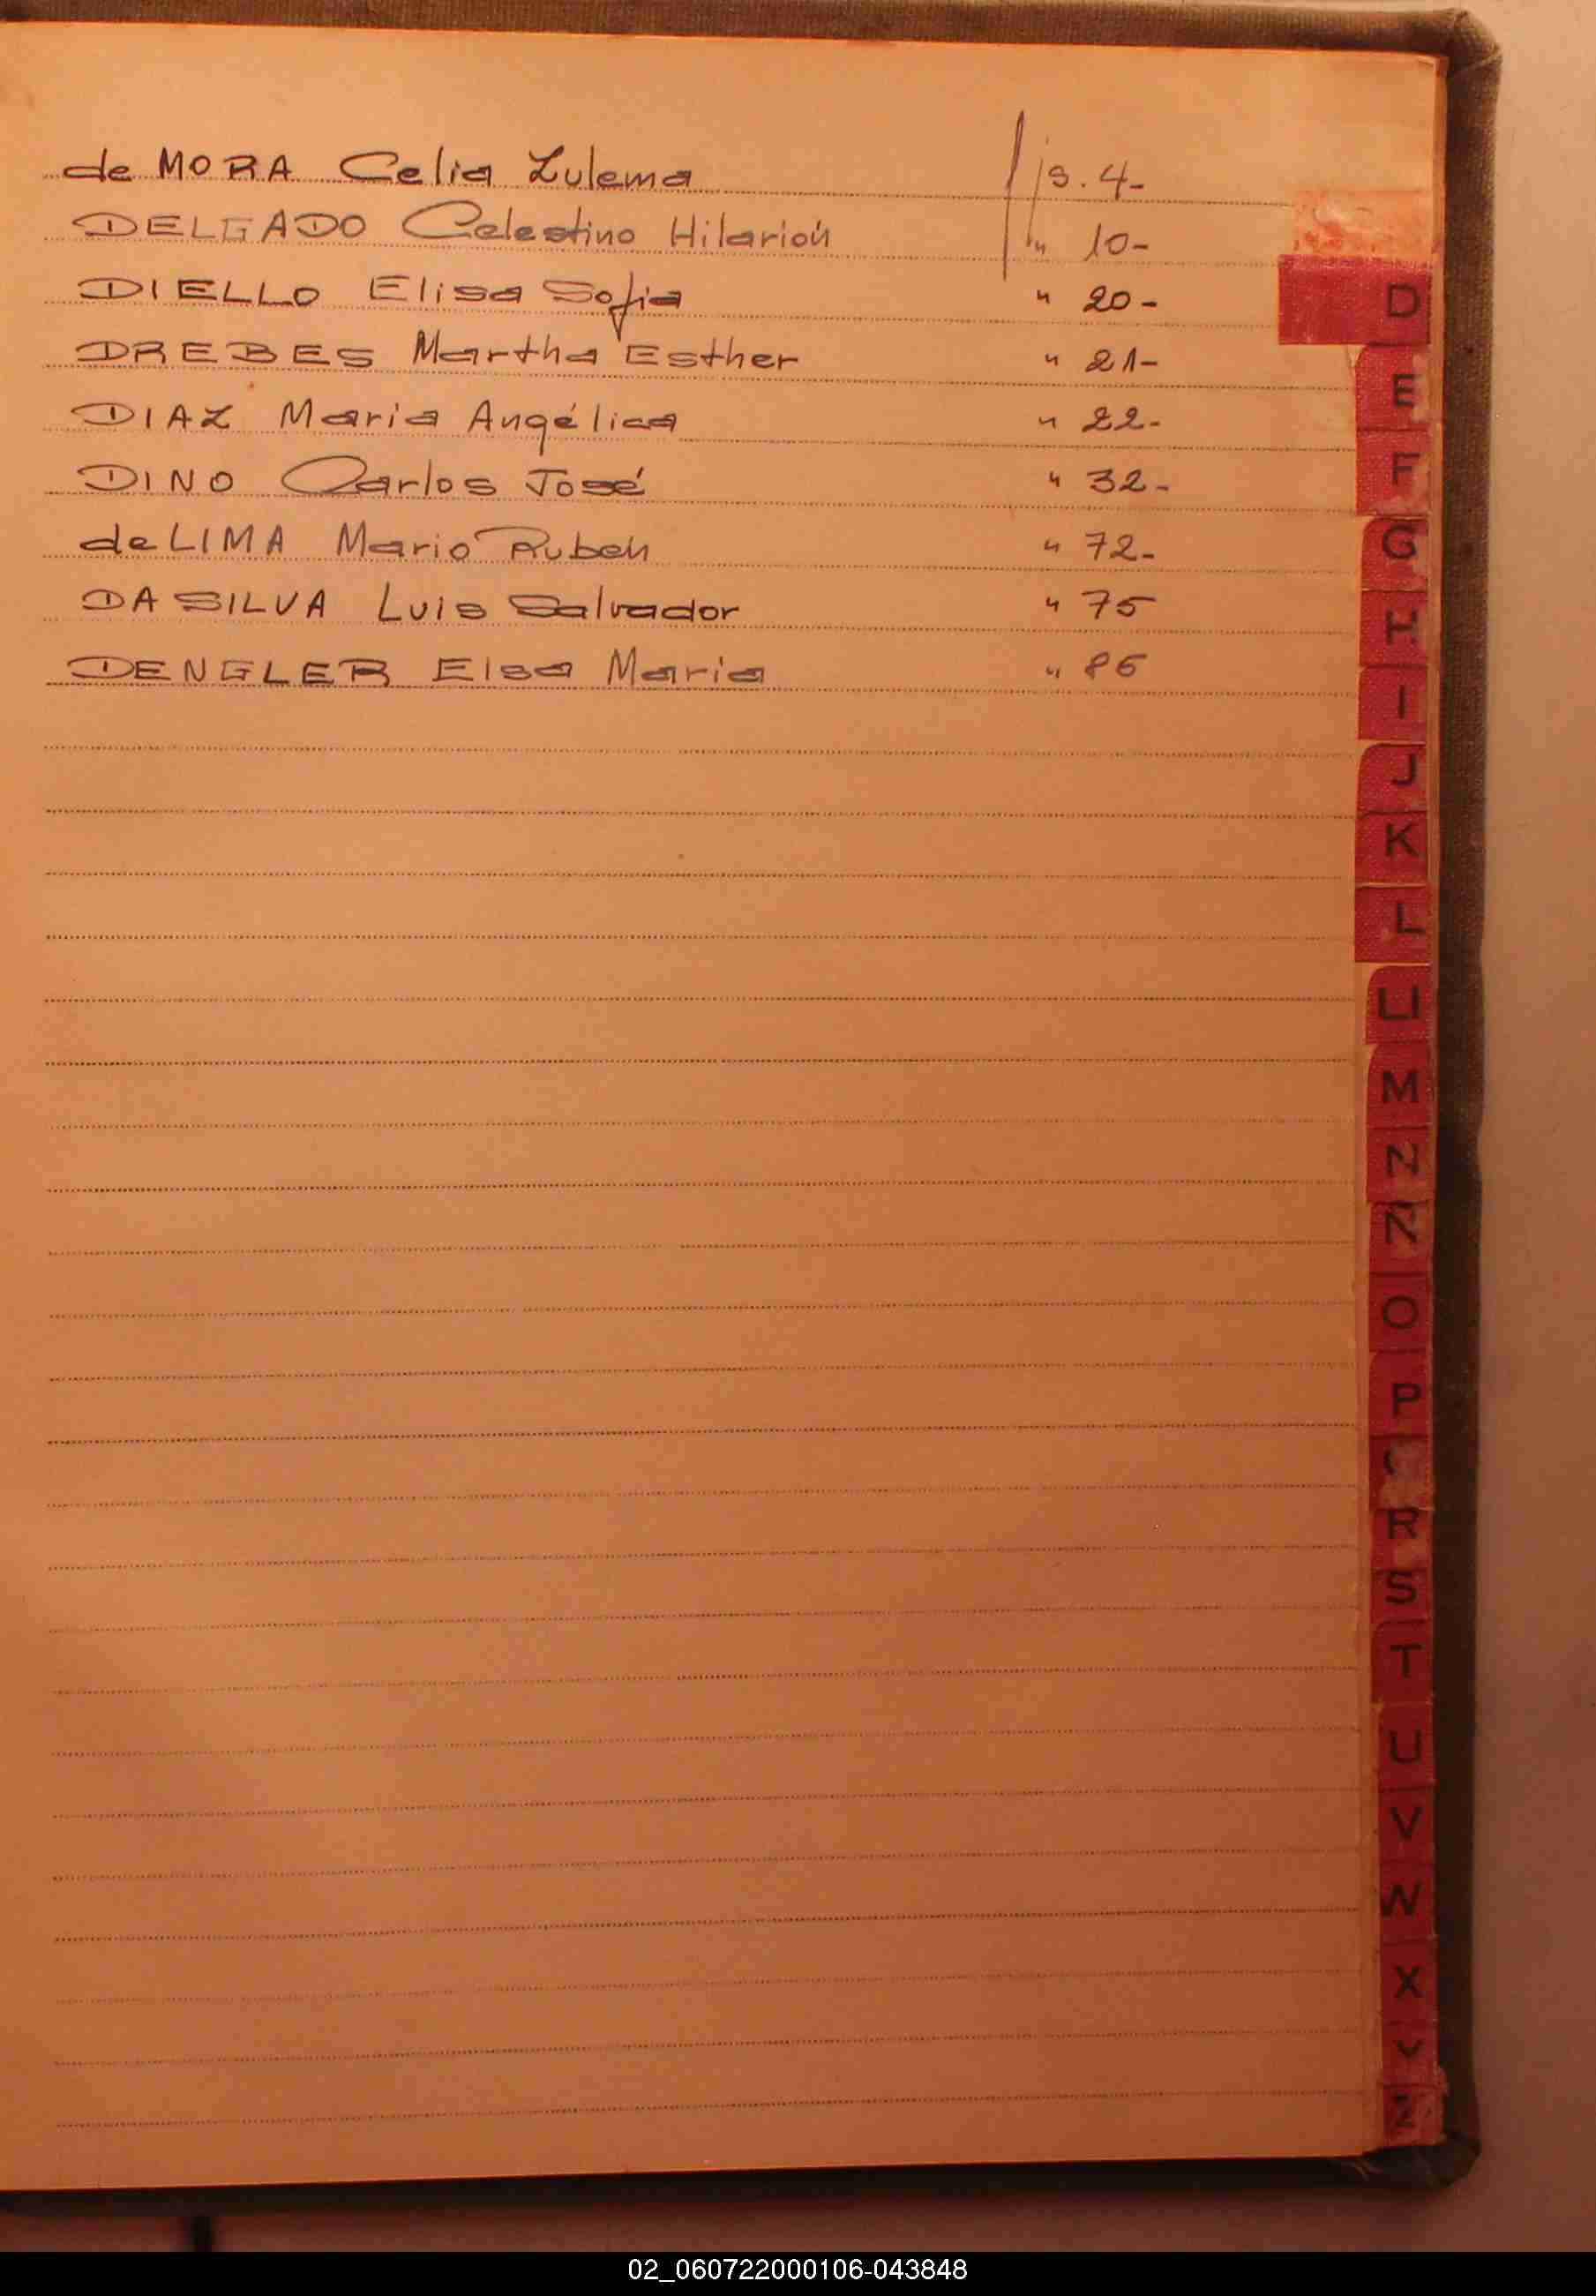 de MORA Celia Zulema fjs. 4-
DELGADO Celestino Hilarión " 10-
DIELLO Elisa Sofia " 20-
DREBES Martha Esther " 21-
DIAZ Maria Angélica " 22-
DINO Carlos José " 32-
de LIMA Mario Ruben " 72-
DA SILVA Luis Salvador " 75
DENGLER Elsa Maria " 86
D
E
F
G
H
I
J
K
L
Ll
M
N
Ñ
O
P
R
S
T
U
V
W
X
Y
Z
02_060722000106-043848